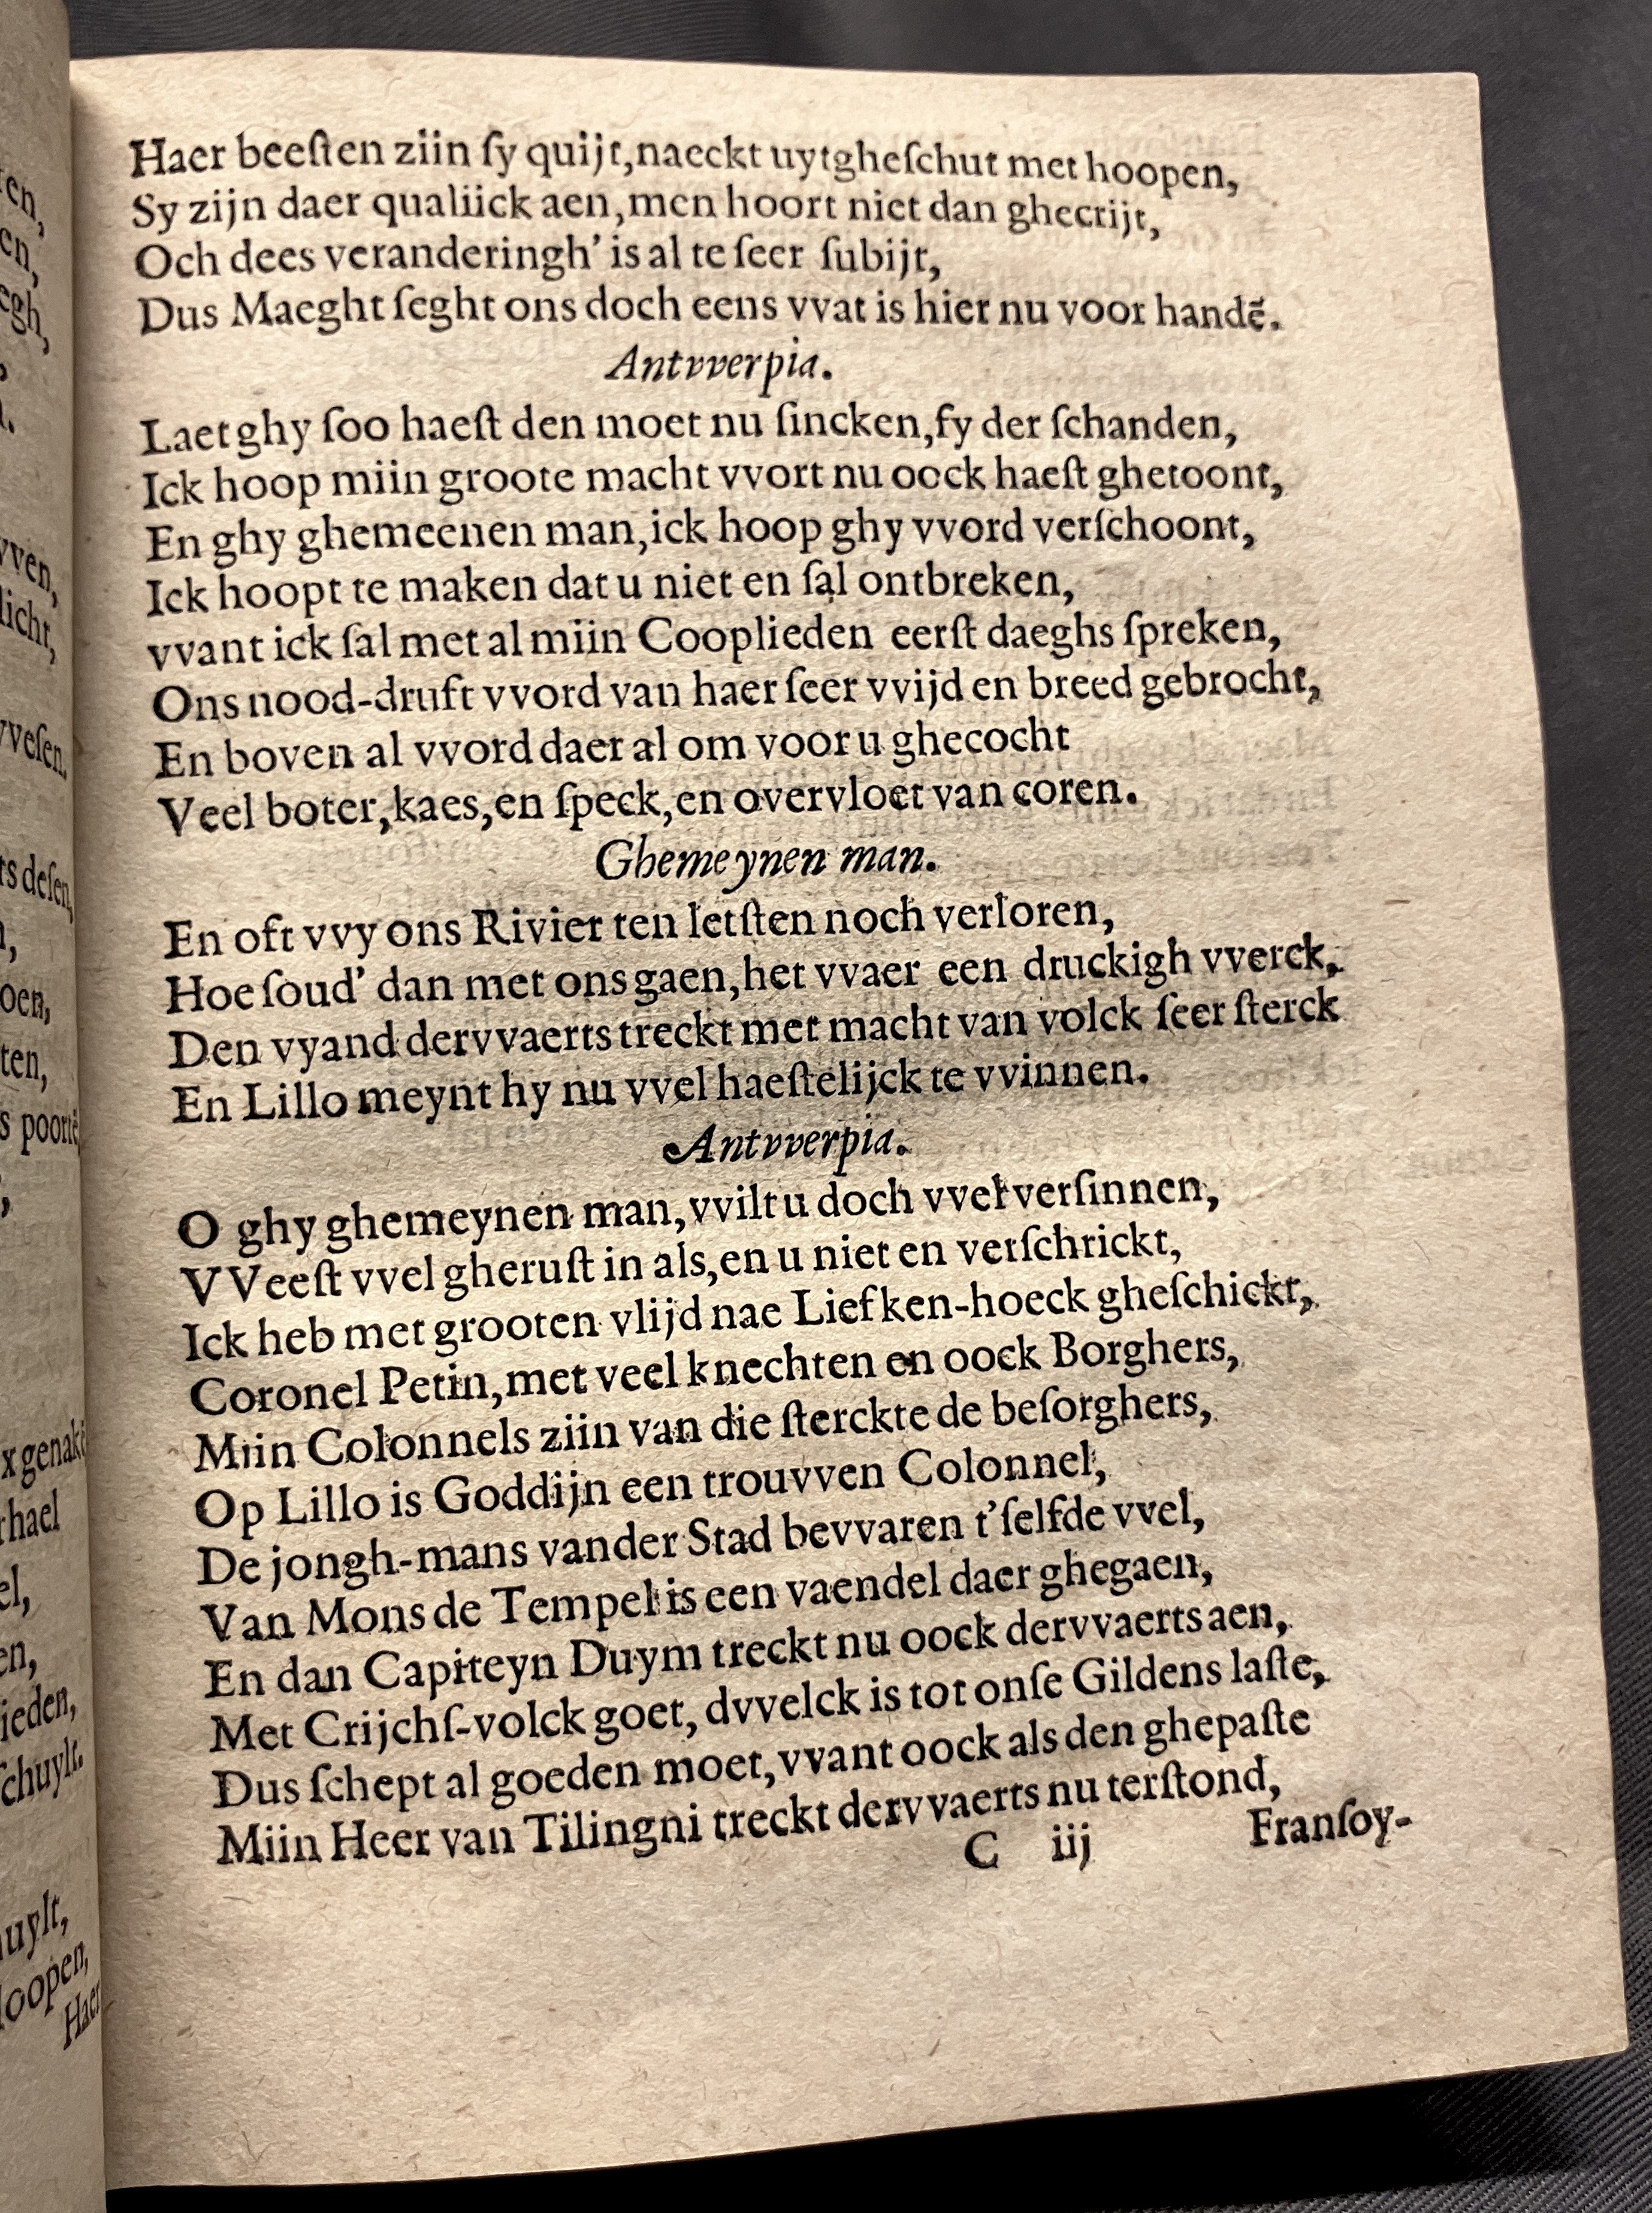 Haer beeſten ziin ſy quijt, naeckt uytgheſchut met hoopen,
Sy zijn daer qualiick aen, men hoort niet dan ghecrijt,
Och dees veranderingh' is al te ſeer ſubijt,
Dus Maeght ſeght ons doch eens vvat is hier nu voor handē.
Antvverpia.
Laet ghy ſoo haeſt den moet nu ſincken, fy der ſchanden,
Ick hoop miin groote macht vvort nu oock haeſt ghetoont,
En ghy ghemeenen man, ick hoop ghy vvord verſchoont,
Ick hoopt te maken dat u niet en ſal ontbreken,
vvant ick ſal met al miin Cooplieden eerſt daeghs ſpreken,
Ons nood-druft vvord van haer ſeer vvijd en breed gebrocht,
En boven al vvord daer al om voor u ghecocht
Veel boter, kaes, en ſpeck, en overvloet van coren.
Ghemeynen man.
En oft vvy ons Rivier ten letſten noch verloren,
Hoe ſoud' dan met ons gaen, het vvaer een druckigh vverck,
Den vyand dervvaerts treckt met macht van volck ſeer ſterck
En Lillo meynt hy nu vvel haeſtelijck te vvinnen.
Antvverpia.
O ghy ghemeynen man, vvilt u doch vvel verſinnen,
VVeeſt vvel gheruſt in als, en u niet en verſchrickt,
Ick heb met grooten vlijd nae Liefken-hoeck gheſchickt,
Coronel Petin, met veel knechten en oock Borghers,
Miin Colonnels ziin van die ſterckte de beſorghers,
Op Lillo is Goddijn een trouvven Colonnel,
De jongh-mans vander Stad bevvaren t'ſelfde vvel,
Van Mons de Tempel is een vaendel daer ghegaen,
En dan Capiteyn Duym treckt nu oock dervvaerts aen,
Met Crijchſ-volck goet, dvvelck is tot onſe Gildens laſte,
Dus ſchept al goeden moet, vvant oock als den ghepaſte
Miin Heer van Tilingni treckt dervvaerts nu terſtond,
C iij Franſoy-